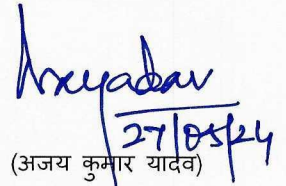 Axyadav
27/05/24
(अजय कुमार यादव)